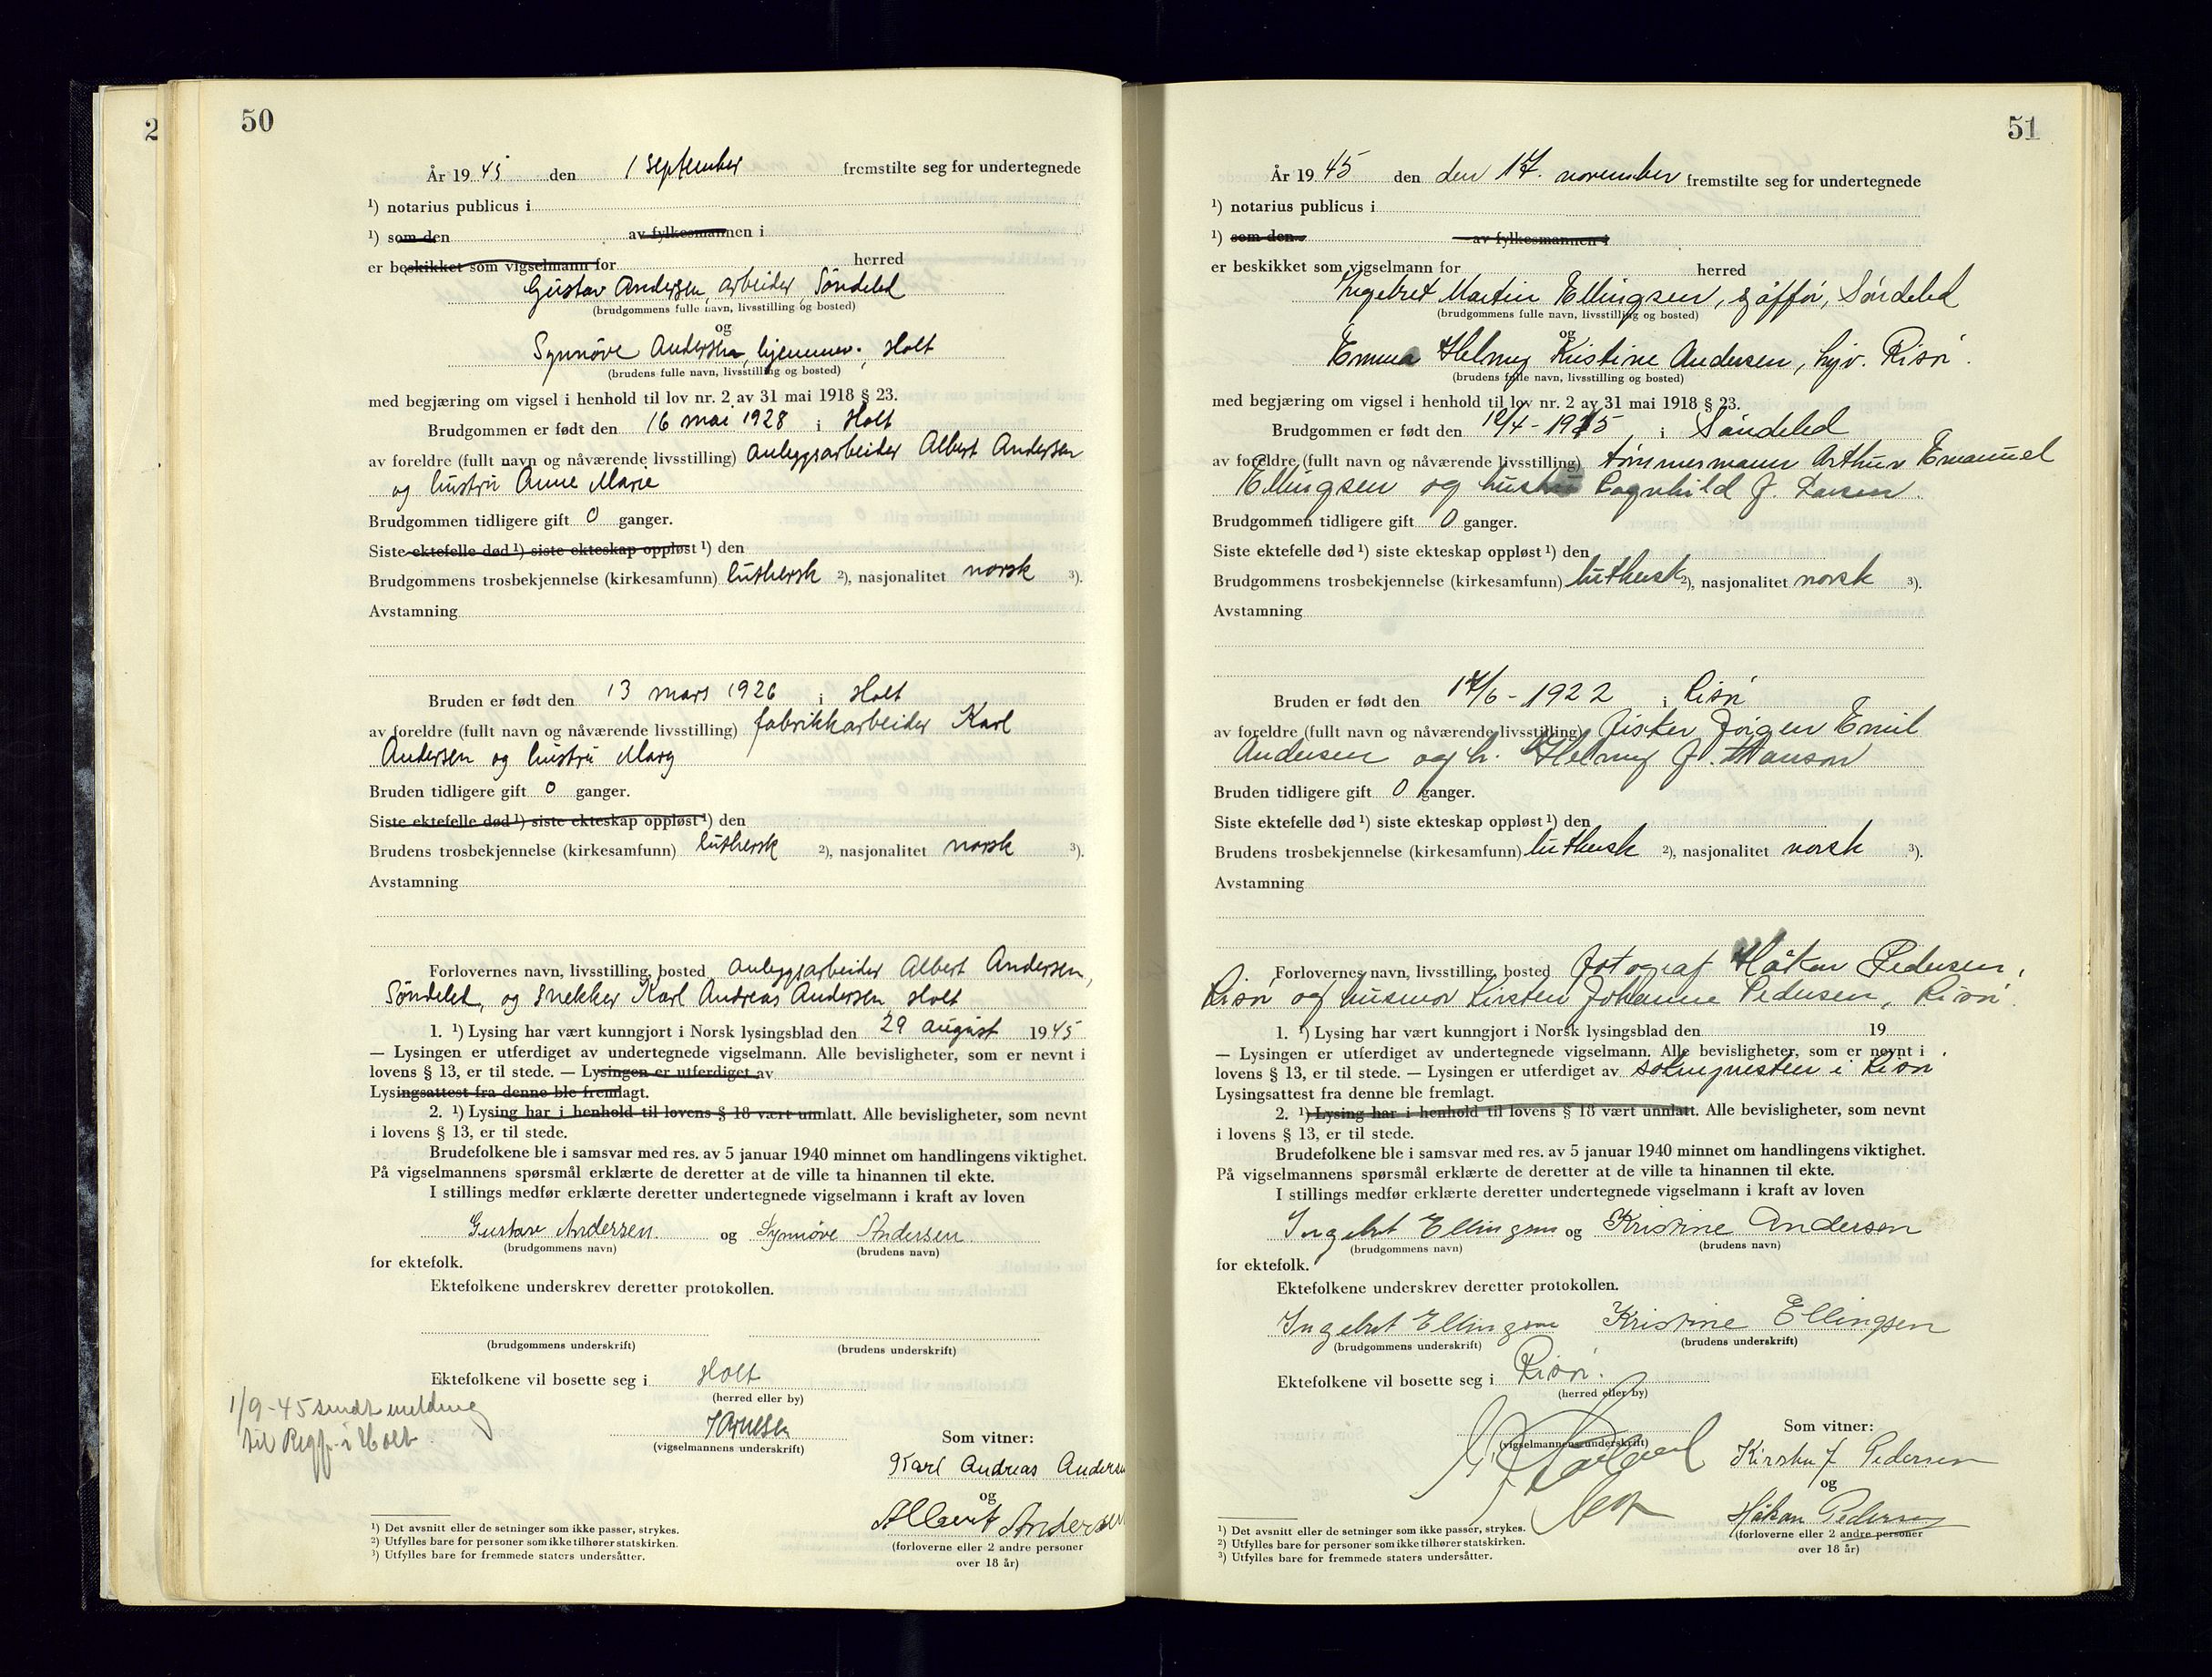 2
50
År 19 45 den 1 september fremstilte seg for undertegnede
¹) notarius publicus i
¹) som den av fylkesmannen i
er beskikket som vigselmann for herred
Gustav Andersen, arbeider, Søndeled
(brudgommens fulle navn, livsstilling og bosted)
og
Synnøve Andersen, hjemmev., Holt
(brudens fulle navn, livsstilling og bosted)
med begjæring om vigsel i henhold til lov nr. 2 av 31 mai 1918 § 23.
Brudgommen er født den 16 mai 1928 i Holt
av foreldre (fullt navn og nåværende livsstilling) anleggsarbeider Albert Andersen
og hustru Anne Marie
Brudgommen tidligere gift 0 ganger.
Siste ektefelle død ¹) siste ekteskap oppløst ¹) den
Brudgommens trosbekjennelse (kirkesamfunn) luthersk ²), nasjonalitet norsk ³).
Avstamning
Bruden er født den 13 mars 1926 i Holt
av foreldre (fullt navn og nåværende livsstilling) fabrikkarbeider Karl
Andersen og hustru Mary
Bruden tidligere gift 0 ganger.
Siste ektefelle død ¹) siste ekteskap oppløst ¹) den
Brudens trosbekjennelse (kirkesamfunn) luthersk ²), nasjonalitet norsk ³).
Avstamning
Forlovernes navn, livsstilling, bosted anleggsarbeider Albert Andersen,
Søndeled, og snekker Karl Andreas Andersen Holt
1. ¹) Lysing har vært kunngjort i Norsk lysingsblad den 29 august 1945
— Lysingen er utferdiget av undertegnede vigselmann. Alle bevisligheter, som er nevnt i
lovens § 13, er til stede. — Lysingen er utferdiget av
Lysingsattest fra denne ble fremlagt.
2. ¹) Lysing har i henhold til lovens § 18 vært unnlatt. Alle bevisligheter, som nevnt
i lovens § 13, er til stede.
Brudefolkene ble i samsvar med res. av 5 januar 1940 minnet om handlingens viktighet.
På vigselmannens spørsmål erklærte de deretter at de ville ta hinannen til ekte.
I stillings medfør erklærte deretter undertegnede vigselmann i kraft av loven
Gustav Andersen. og Synnøve Andersen
(brudgommens navn) (brudens navn)
for ektefolk.
Ektefolkene underskrev deretter protokollen.
(brudgommens underskrift) (brudens underskrift)
Ektefolkene vil bosette seg i Holt
(herred eller by)
1/9-45 sendt melding
til Regf. i Holt
(vigselmannens underskrift)
Som vitner:
Karl Andreas Andersen
og
Albert Andersen
(forloverne eller 2 andre personer
over 18 år)
¹) Det avsnitt eller de setninger som ikke passer, strykes.
²) Utfylles bare for personer som ikke tilhører statskirken.
³) Utfylles bare for fremmede staters undersåtter.
51
År 19 45 den den 17. november fremstilte seg for undertegnede
¹) notarius publicus i
¹) som den av fylkesmannen i
er beskikket som vigselmann for herred
Ingebret Martin Ellingsen, sjåffør, Søndeled
(brudgommens fulle navn, livsstilling og bosted)
og
Emma Helmy Kristine Andersen, hjv. Risør.
(brudens fulle navn, livsstilling og bosted)
med begjæring om vigsel i henhold til lov nr. 2 av 31 mai 1918 § 23.
Brudgommen er født den 19/4-1915 i Søndeled
av foreldre (fullt navn og nåværende livsstilling) tømmermann Arthur Emanuel
Ellingsen og hustru Ragnhild J. Larsen.
Brudgommen tidligere gift 0 ganger.
Siste ektefelle død ¹) siste ekteskap oppløst ¹) den
Brudgommens trosbekjennelse (kirkesamfunn) luthersk ²), nasjonalitet norsk ³).
Avstamning
Bruden er født den 17/6-1922 i Risør
av foreldre (fullt navn og nåværende livsstilling) fisker Jørgen Emil
Andersen og h. Helmy J. Hanson
Bruden tidligere gift 0 ganger.
Siste ektefelle død ¹) siste ekteskap oppløst ¹) den
Brudens trosbekjennelse (kirkesamfunn) luthersk ²), nasjonalitet norsk ³).
Avstamning
Forlovernes navn, livsstilling, bosted fotograf Håkon Pedersen,
Risør og husmor Kirsten Johanne Pedersen, Risør.
1. ¹) Lysing har vært kunngjort i Norsk lysingsblad den 19
— Lysingen er utferdiget av undertegnede vigselmann. Alle bevisligheter, som er nevnt i
lovens § 13, er til stede. — Lysingen er utferdiget av soknepresten i Risør
Lysingsattest fra denne ble fremlagt.
2. ¹) Lysing har i henhold til lovens § 18 vært unnlatt. Alle bevisligheter, som nevnt
i lovens § 13, er til stede.
Brudefolkene ble i samsvar med res. av 5 januar 1940 minnet om handlingens viktighet.
På vigselmannens spørsmål erklærte de deretter at de ville ta hinannen til ekte.
I stillings medfør erklærte deretter undertegnede vigselmann i kraft av loven
Ingebret Ellingsen og Kristine Andersen
(brudgommens navn) (brudens navn)
for ektefolk.
Ektefolkene underskrev deretter protokollen.
Ingebret Ellingsen Kristine Ellingsen
(brudgommens underskrift) (brudens underskrift)
Ektefolkene vil bosette seg i Risør.
(herred eller by)
(vigselmannens underskrift)
Som vitner:
Kirsten J Pedersen
og
Håkon Pedersen
(forloverne eller 2 andre personer
over 18 år)
¹) Det avsnitt eller de setninger som ikke passer, strykes.
²) Utfylles bare for personer som ikke tilhører statskirken.
³) Utfylles bare for fremmede staters undersåtter.